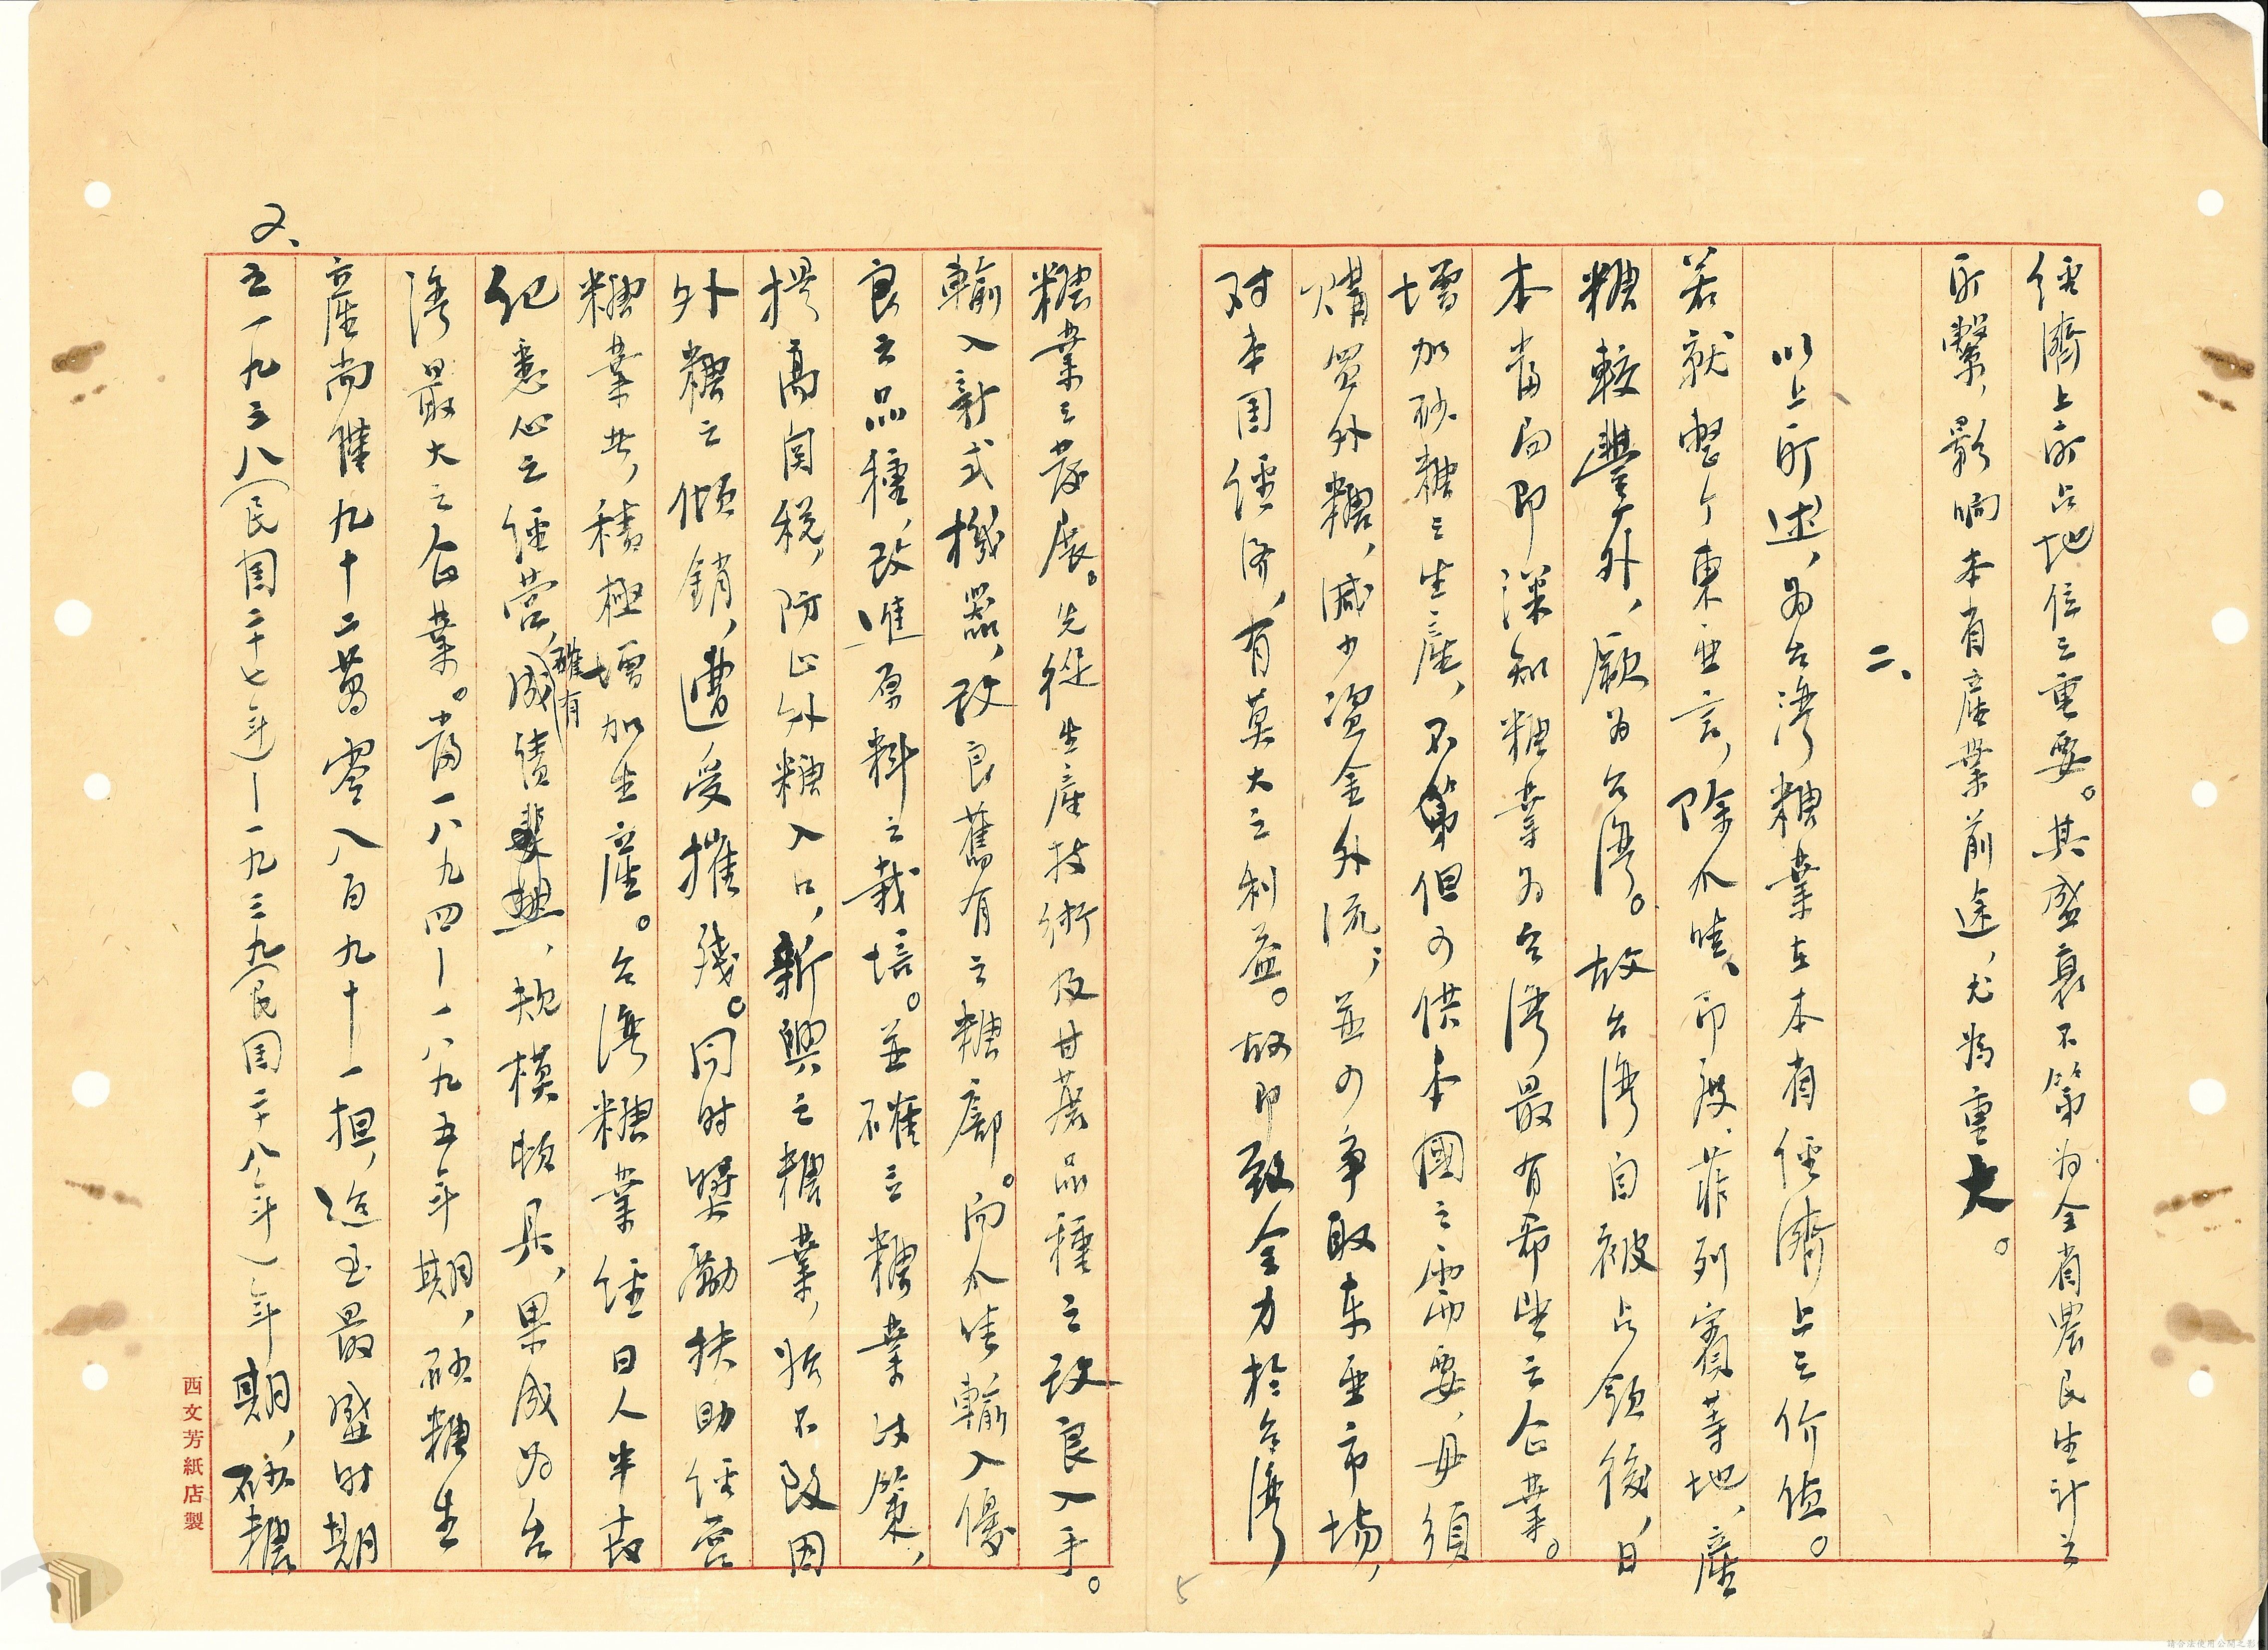 經濟上所占地位之重要。其盛衰不第為全省農民生計之
所繫，影响本省產業前途，尤為重大。
二、
以上所述，為台湾糖業在本省經濟上之价值。
若就整个東亜言，除爪哇、印度、菲列賓等地，產
糖較豐外，厥为台湾。故台湾自被占領後，日
本當局即深知糖業为台湾最有希望之企業。
增加砂糖之生產，不第但可供本國之需要，毋須
購買外糖，減少資金外流；並可争取东亜市場，
对本国經济，有莫大之利益。故即致全力於台湾
糖業之發展。先從生產技術及甘蔗品種之改良入手。
輸入新式機器，改良舊有之糖廍。向爪哇輸入優
良之品種，改進原料之栽培。並確立糖業政策，
提高関税，防止外糖入口，新興之糖業，始不致因
外糖之傾銷，遭受摧殘。同时奬勵扶助經营
糖業者，積極增加生產。台湾糖業經日人半世
纪悉心之經营，確有成績，規模頓具，果成为台
湾最大之企業。當一八九四—一八九五年期，砂糖生
產尚僅九十二萬零八百九十一担，迨至最盛时期
又、
五一九三八（民国二十七年）—一九三九（民国二十八年）年期，砂糖
西文芳紙店製
5